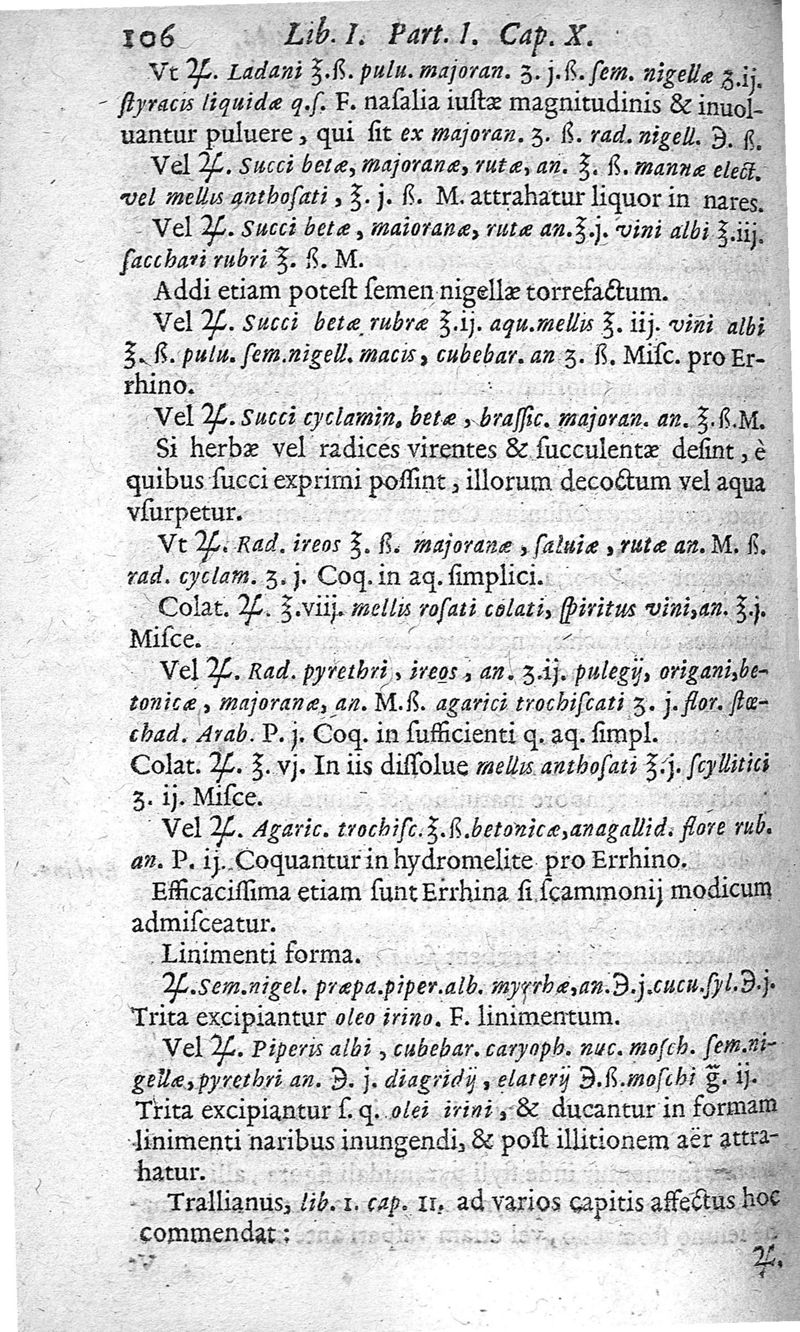 106 Lib. I. Part. I. Cap. X.
Vt ♃. Ladani ℥.ß. pulu. majoran. ʒ. j.ß. ſem. nigellæ ʒ.ij.
ſtyracis liquidæ q.ſ. F. naſalia iuſtæ magnitudinis & inuol-
uantur puluere, qui ſit ex majoran. ʒ. ß. rad. nigell. ℈. ß.
Vel ♃. Succi betæ, majoranæ, rutæ, an. ℥. ß. mannæ elect.
vel mellis anthoſati, ℥. j. ß. M. attrahatur liquor in nares.
Vel ♃. Succi betæ, maioranæ, rutæ an.℥.j. vini albi ℥.iij.
ſacchari rubri ℥. ß. M.
Addi etiam poteſt ſemen nigellæ torrefactum.
Vel ♃. Succi betæ rubræ ℥.ij. aqu.mellis ℥. iij. vini albi
℥. ß. pulu. ſem.nigell. macis, cubebar. an ʒ. ß. Miſc. pro Er-
rhino.
Vel ♃. Succi cyclamin. betæ, braſſic. majoran. an. ℥.ß.M.
Si herbæ vel radices virentes & ſucculentæ deſint, è
quibus ſucci exprimi poſſint, illorum decoctum vel aqua
vſurpetur.
Vt ♃. Rad. ireos ℥. ß. majoranæ, ſaluiæ, rutæ an. M. ß.
rad. cyclam. ʒ. j. Coq. in aq. ſimplici.
Colat. ♃. ℥.viij. mellis roſati colati, ſpiritus vini,an. ℥.j.
Miſce.
Vel ♃. Rad. pyrethri, ireos, an. ʒ.ij. pulegij, origani,be-
tonicæ, majoranæ, an. M.ß. agarici trochiſcati ʒ. j. flor. ſtœ-
chad. Arab. P. j. Coq. in ſufficienti q. aq. ſimpl.
Colat. ♃. ℥. vj. In iis diſſolue mellis anthoſati ℥.j. ſcyllitici
ʒ. ij. Miſce.
Vel ♃. Agaric. trochiſc.℥.ß.betonicæ,anagallid. flore rub.
an. P. ij. Coquantur in hydromelite pro Errhino.
Efficaciſſima etiam ſunt Errhina ſi ſcammonij modicum
admiſceatur.
Linimenti forma.
♃.Sem.nigel. præpa.piper.alb. myrrhæ,an.℈.j.cucu.ſyl.℈.j.
Trita excipiantur oleo irino. F. linimentum.
Vel ♃. Piperis albi, cubebar. caryoph. nuc. moſch. ſem.ni-
gellæ,pyrethri an. ℈. j. diagridij, elaterij ℈.ß.moſchi g̃. ij.
Trita excipiantur ſ. q. olei irini, & ducantur in formam
linimenti naribus inungendi, & poſt illitionem aër attra-
hatur.
Trallianus, lib. 1. cap. 11. ad varios capitis affectus hoc
commendat:
♃.